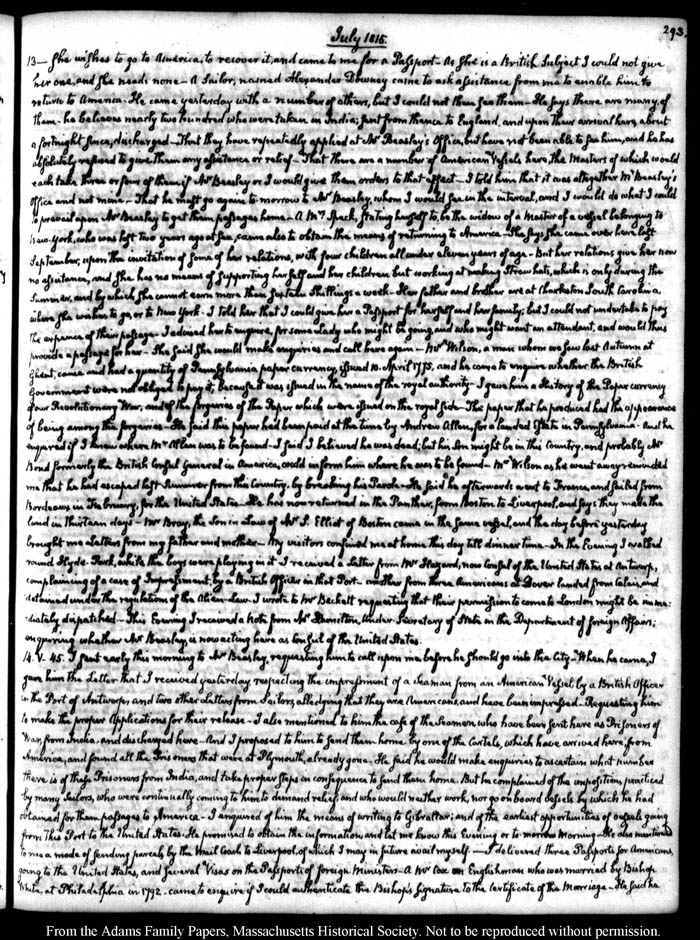 July 1815.
293.
13— She wishes to go to America, to recover it, and came to me for a Passport— As she is a British Subject I could not give
her one, and she needs none— A Sailor, named Alexander Downey came to ask assistance from me to enable him to
return to America— He came yesterday with a number of others, but I could not then see them— He says there are many of
them— he believes nearly two hundred who were taken in India; sent from thence to England, and upon their arrival here, about
a fortnight since, discharged— That they have repeatedly applied at Mr Beasley's Office, but have not been able to see him, and he has
absolutely refused to give them any assistance or relief— That there are a number of American Vessels here, the Masters of which would
each take three or four of them if Mr Beasley or I would give them orders to that effect— I told him that it was altogether Mr Beasley's
Office and not mine— That he must go again to-morrow to Mr Beasley, whom I would see in the interval, and I would do what I could
to prevail upon Mr Beasley to get them passages home— A Mrs Speck, stating herself to be the widow of a Master of a vessel belonging to
New-York, who was lost two years ago at sea, came also to obtain the means of returning to America— She says she came over here last
September, upon the invitation of some of her relations, with four children all under eleven years of age— But her relations give her now
no assistance, and she has no means of supporting herself and her children but working at making Straw hats, which is only during the
Summer, and by which she cannot earn more than sixteen Shillings a week— Her father and brother are at Charleston South Carolina,
where she wishes to go, or to New York— I told her that I could give her a Passport for herself and her family; but I could not undertake to pay
the expence of their passage— I advised her to enquire, for some lady who might be going, and who might want an attendant, and would thus
provide a passage for her— She said she would make enquiries and call here again— Mr Wilson, a man whom we saw last Autumn at
Ghent, came and had a quantity of Pennsylvania paper currency, issued 10. April 1775, and he came to enquire whether the British
Government were not obliged to pay it, because it was issued in the name of the royal authority— I gave him a History of the Paper currency
of our Revolutionary War, and of the forgeries of the Paper which were issued on the royal side— The paper that he produced had the appearance
of being among the forgeries— He said this paper had been paid at the time by Andrew Allen, for a landed Estate in Pennsylvania— And he
enquired if I knew where Mr Allen was to be found— I said I believed he was dead; but his Son might be in this Country, and probably Mr
Bond formerly the British Consul General in America, could inform him where he was to be found— Mr Wilson as he went away reminded
me that he had escaped last Summer from this Country, by breaking his Parole— He said he afterwards went to France, and sailed from
Bordeaux in February, for the United States— He has now returned in the Panther, from Boston to Liverpool, and says they made the
land in thirteen days— Mr Bray, the Son in Law of Mr S. Elliot of Boston came in the same vessel, and the day before yesterday
brought me Letters from my father and mother— My visitors confined me at home this day till dinner time— In the Evening I walked
round Hyde Park, while the boys were playing in it— I received a Letter from Mr Hazard, now Consul of the United States at Antwerp,
complaining of a case of Impressment, by a British Officer in that Port— another from three Americans at Dover landed from Calais, and
detained under the regulations of the Alien-Law— I wrote to Mr Beckett requesting that their permission to come to London might be imme-
diately dispatched— This Evening I received a Note from Mr Hamilton, Under Secretary of State in the Department of foreign Affairs;
enquiring whether Mr Beasley, is now acting here as Consul of the United States.
14. V. 45. I sent early this morning to Mr Beasley, requesting him to call upon me, before he should go into the City— When he came, I
gave him the Letter that I received yesterday respecting the impressment of a Seaman from an American Vessel by a British Officer
in the Port of Antwerp, and two other Letters from Sailors, alledging that they are Americans, and have been impressed— Requesting him
to make the proper Applications for their release— I also mentioned to him the case of the Seamen who have been sent here as Prisoners of
War, from India, and discharged here— And I proposed to him to send them home by one of the Cartels, which have arrived here, from
America, and found all the Prisoners that were at Plymouth, already gone— He said he would make enquiries to ascertain what number
there is of these Prisoners from India, and take proper steps in consequence to send them home. But he complained of the imposition, practiced
by many Sailors, who were continually coming to him to demand relief, and who would neither work, nor go on board vessels by which he had
obtained for them passages to America— I enquired of him the means of writing to Gibraltar; and of the earliest opportunities of vessels going
from this Port to the United States. He promised to obtain the information, and let me know this Evening or to-morrow Morning— He also mentioned
to me a mode of sending parcels by the Mail Coach to Liverpool, of which I may in future avail myself— I delivered three Passports for Americans,
going to the United States, and several Visas on the Passports of foreign Ministers— A Mr Cox an Englishman who was married by Bishop
White, at Philadelphia in 1792— came to enquire if I could authenticate the Bishop's signature to the Certificate of the Marriage— He said he
From the Adams Family Papers, Massachusetts Historical Society. Not to be reproduced without permission.